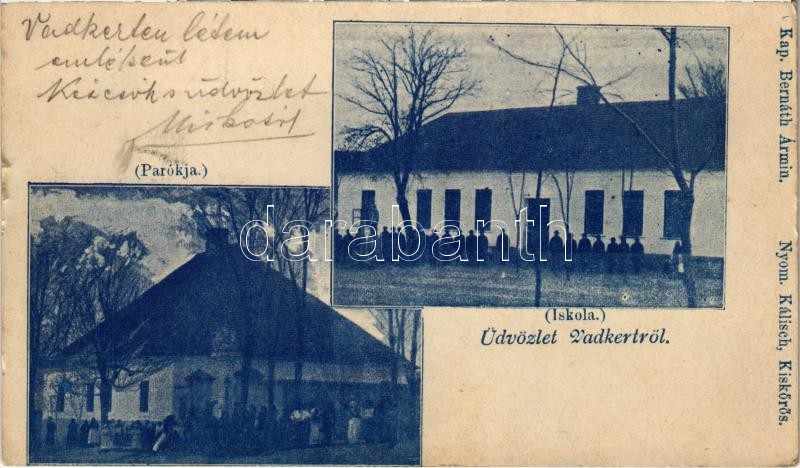 Vadkerten létem
emlékéül
üdvözlet
(Parókja.)
(Iskola.)
Üdvözlet Vadkertröl.
Kap. Bernáth Ármin. Nyom. Kálisch, Kiskőrös.
darabanth